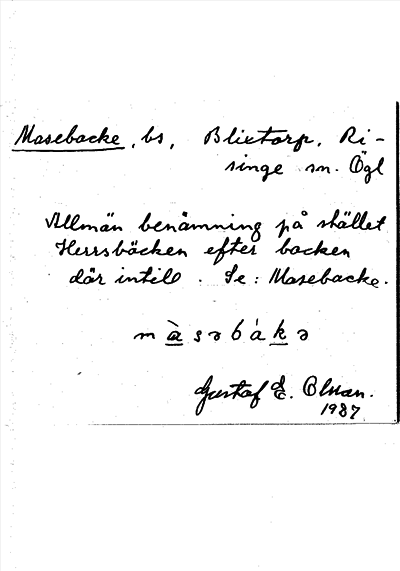 Masebacke, bs, Blixtorp, Ri-
singe sn. Ögl
Allmän benämning på stället
Herrsbäcken efter backen
där intill. Se: Masebacke.
m à s ə b á k ə
Gustaf E. Olsson.
1987